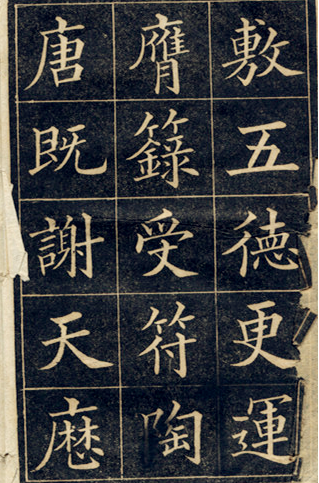 敷五德更運
膺籙受符陶
唐既謝天歷